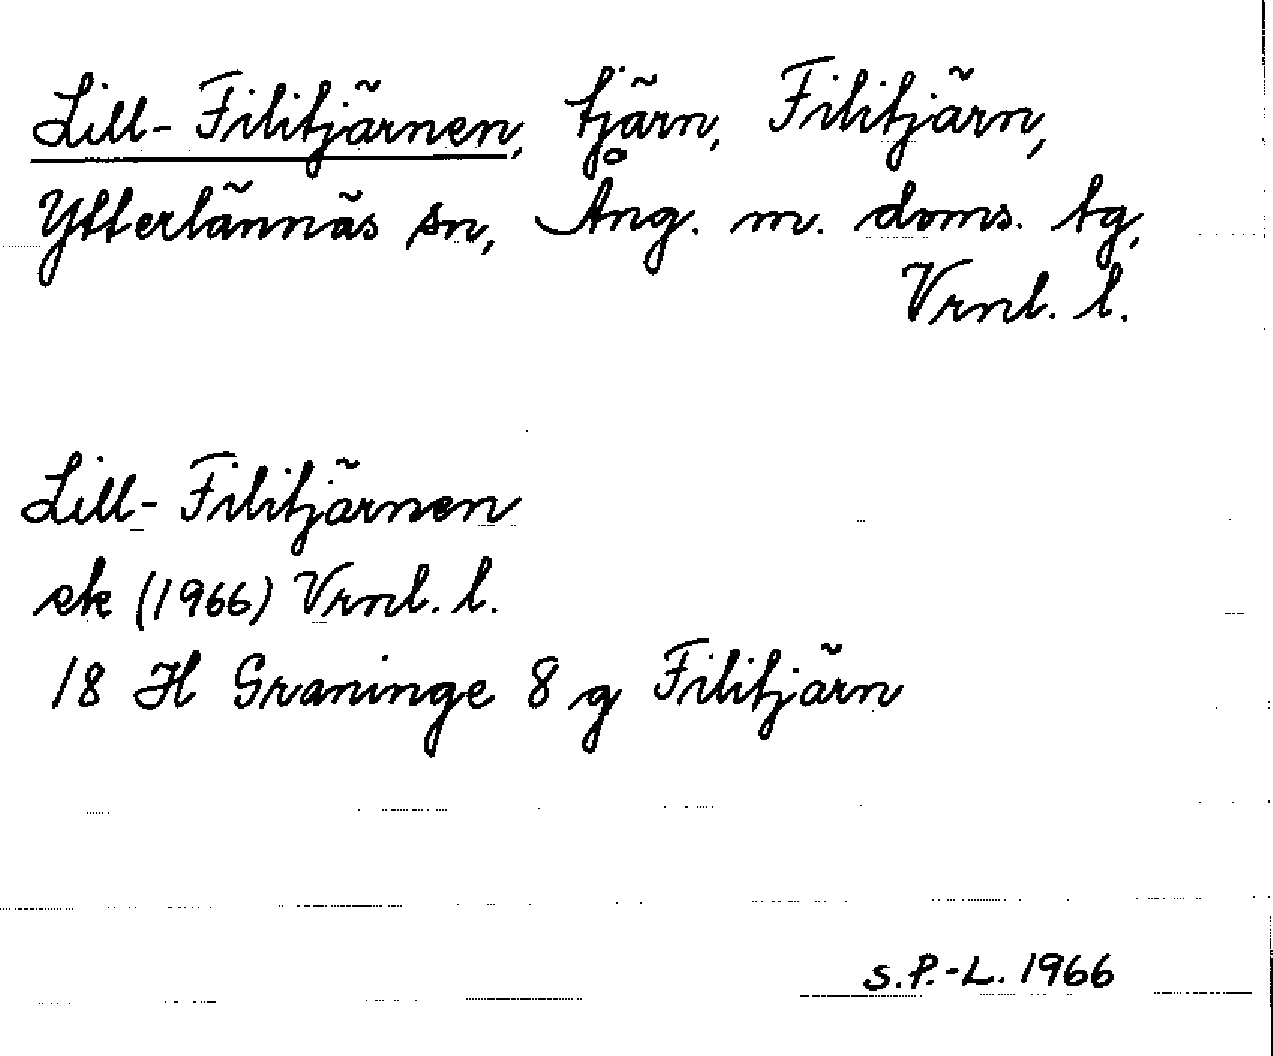 Lill-Filitjärnen, tjärn, Filitjärn,
Ytterlännäs sn, Ång. m. doms. tg,
Vrnl. l.
Lill-Filitjärnen
ek (1966) Vrnl. l.
18 H Graninge 8 g Filitjärn
S.P.-L. 1966